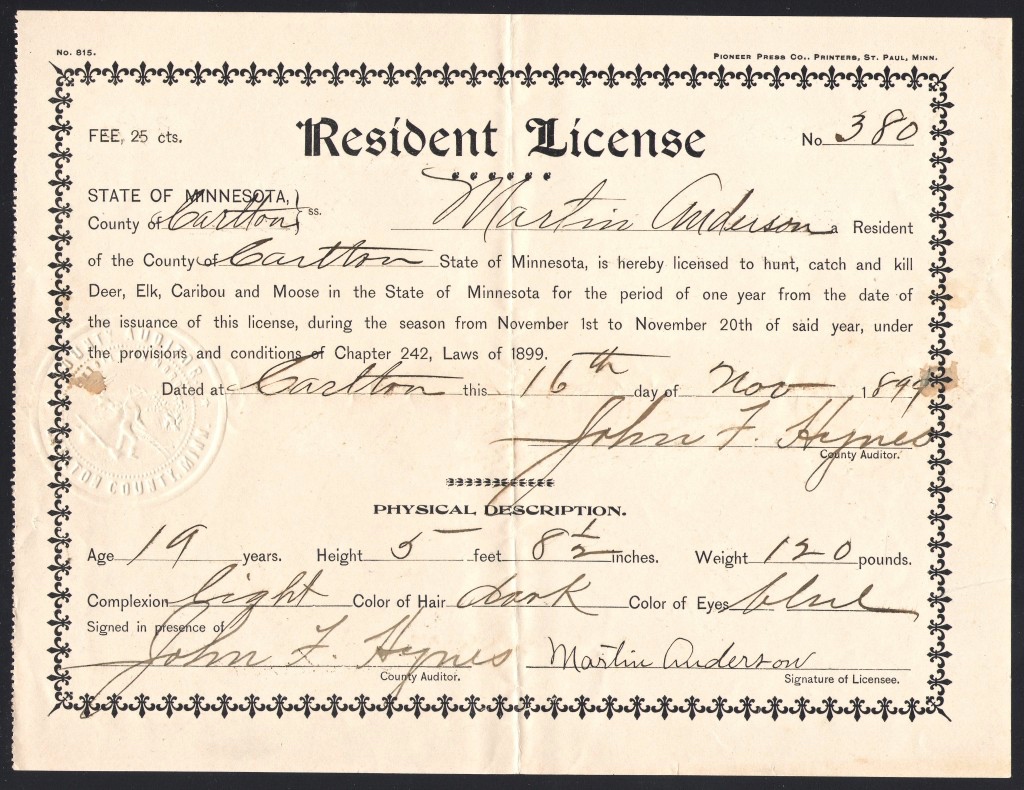 No. 815.
PIONEER PRESS CO., PRINTERS, ST. PAUL, MINN.
FEE, 25 cts.
Resident License
No. 380
STATE OF MINNESOTA,
County of Carlton } ss. Martin Anderson a Resident
of the County of Carlton State of Minnesota, is hereby licensed to hunt, catch and kill
Deer, Elk, Caribou and Moose in the State of Minnesota for the period of one year from the date of
the issuance of this license, during the season from November 1st to November 20th of said year, under
the provisions and conditions of Chapter 242, Laws of 1899.
Dated at Carlton this 16th day of Nov 1899
John F. Hynes
County Auditor.
COUNTY AUDITOR
COUNTY, MINN.
PHYSICAL DESCRIPTION.
Age 19 years. Height 5 feet 8 1/2 inches. Weight 120 pounds.
Complexion light Color of Hair dark Color of Eyes blue
Signed in presence of
John F. Hynes Martin Anderson
County Auditor. Signature of Licensee.